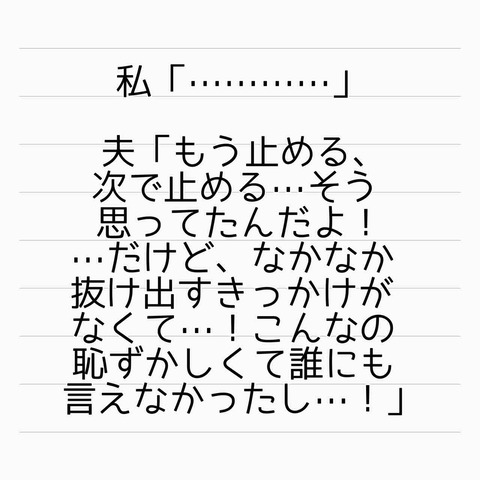 私「…………」
夫「もう止める、
次で止める…そう
思ってたんだよ！
…だけど、なかなか
抜け出すきっかけが
なくて…！こんなの
恥ずかしくて誰にも
言えなかったし…！」